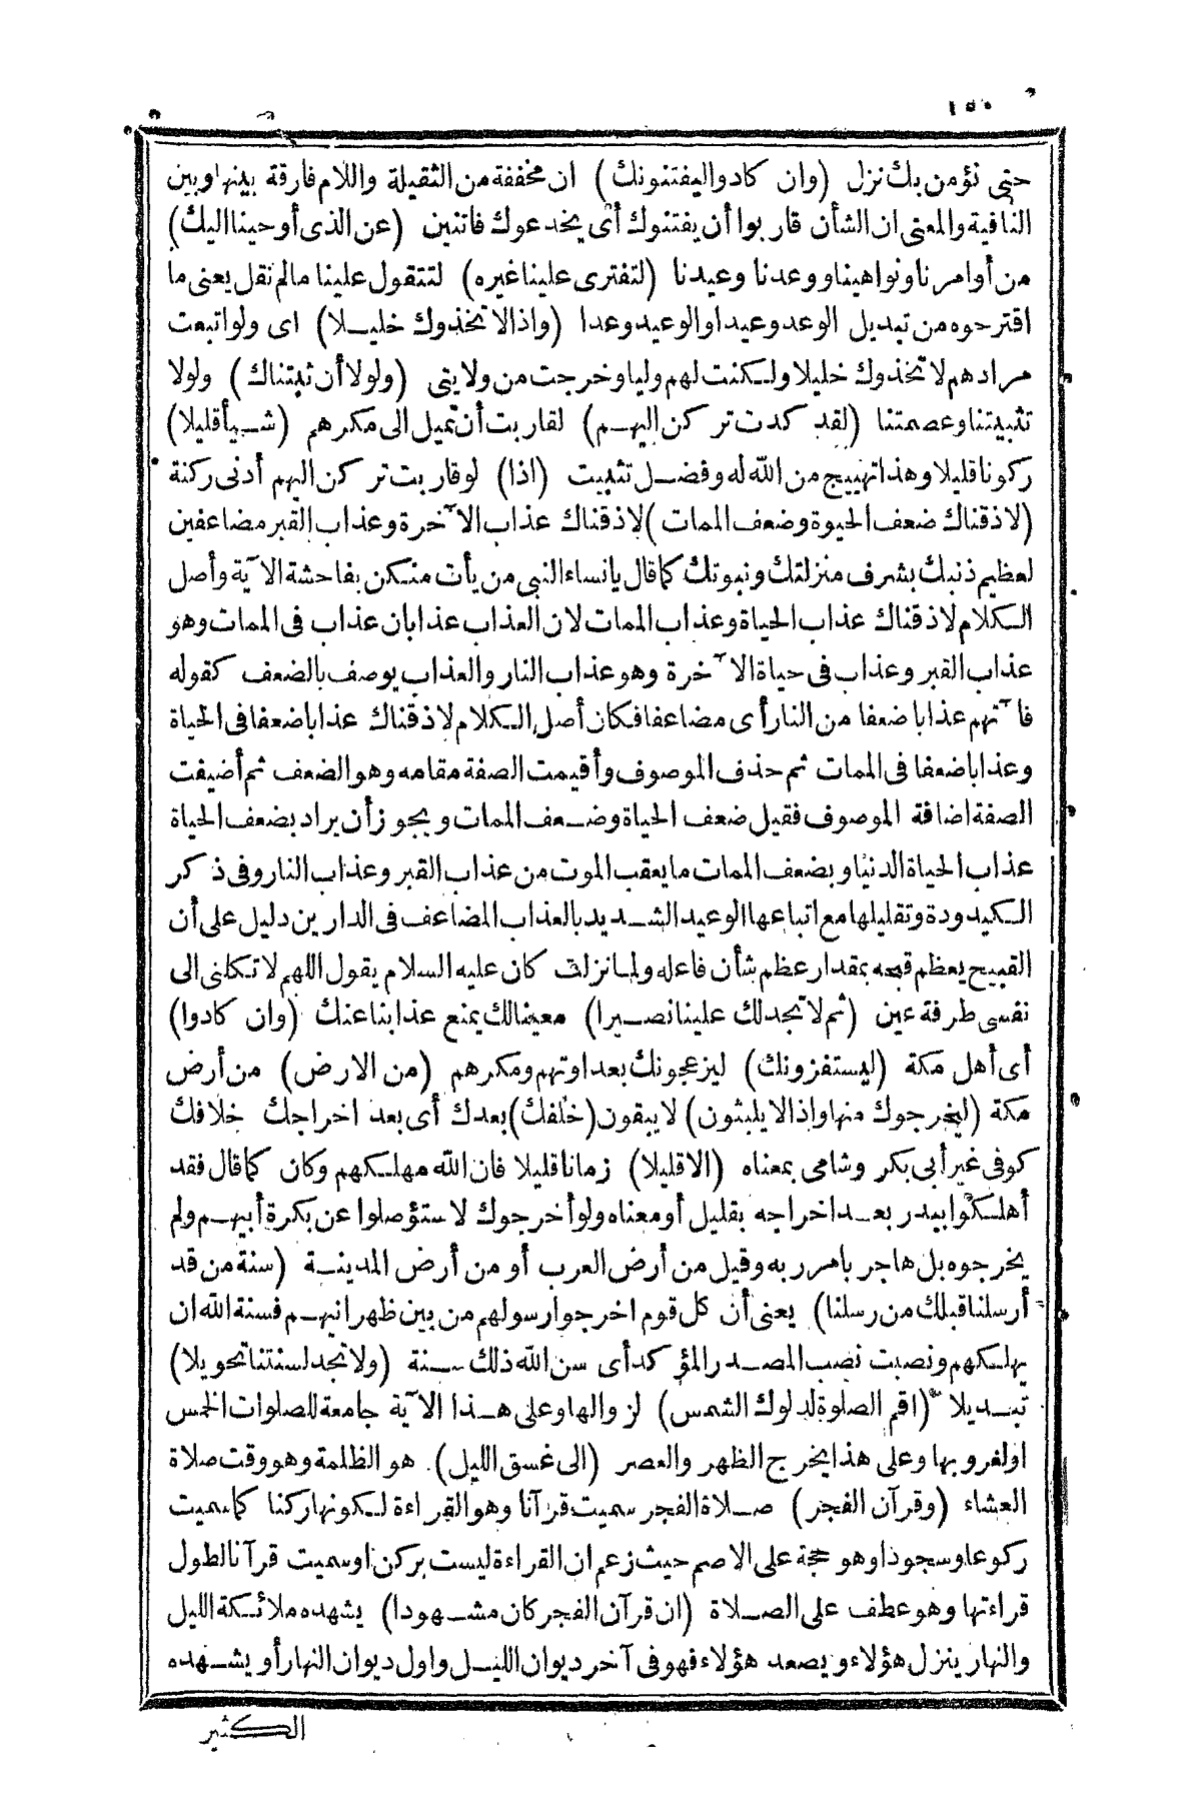 ١٥٠
حتى نؤمن بك نزل (وان كادوا ليفتنونك) ان مخففة من الثقيلة واللام فارقة بينها وبين
النافية والمعنى ان الشأن قاربوا أن يفتنوك أى يخدعوك فاتنين (عن الذى أوحينا اليك)
من أوامرنا ونواهينا ووعدنا وعيدنا (لتفترى علينا غيره) لتتقول علينا مالم نقل يعنى ما
اقترحوه من تبديل الوعد وعيدا والوعيد وعدا (واذا لاتخذوك خليلا) اى ولو اتبعت
مرادهم لاتخذوك خليلا ولكنت لهم وليا وخرجت من ولايتى (ولولا أن ثبتناك) ولولا
تثبيتنا وعصمتنا (لقد كدت تركن اليهم) لقاربت أن تميل الى مكرهم (شيأ قليلا)
ركونا قليلا وهذا تهييج من الله له وفضل تثبيت (اذا) لو قاربت تركن اليهم أدنى ركنة
(لاذقناك ضعف الحيوة وضعف الممات) لاذقناك عذاب الآخرة وعذاب القبر مضاعفين
لعظيم ذنبك بشرف منزلتك ونبوتك كما قال يانساء النبى من يأت منكن بفاحشة الآية وأصل
الكلام لاذقناك عذاب الحياة وعذاب الممات لان العذاب عذابان عذاب فى الممات وهو
عذاب القبر وعذاب فى حياة الآخرة وهو عذاب النار والعذاب يوصف بالضعف كقوله
فآتهم عذابا ضعفا من النار أى مضاعفا فكان أصل الكلام لاذقناك عذابا ضعفا فى الحياة
وعذابا ضعفا فى الممات ثم حذف الموصوف وأقيمت الصفة مقامه وهو الضعف ثم أضيفت
الصفة اضافة الموصوف فقيل ضعف الحياة وضعف الممات ويجوز أن يراد بضعف الحياة
عذاب الحياة الدنيا وبضعف الممات ما يعقب الموت من عذاب القبر وعذاب النار وفى ذكر
الكيدودة وتقليلها مع اتباعها الوعيد الشديد بالعذاب المضاعف فى الدارين دليل على أن
القبيح يعظم قبحه بمقدار عظم شأن فاعله ولما نزلت كان عليه السلام يقول اللهم لاتكلنى الى
نفسى طرفة عين (ثم لا تجد لك علينا نصيرا) معينا لك يمنع عذابنا عنك (وان كادوا)
أى أهل مكة (ليستفزونك) ليزعجونك بعداوتهم ومكرهم (من الارض) من أرض
مكة (ليخرجوك منها واذا لايلبثون) لا يبقون (خلفك) بعدك أى بعد اخراجك خلافك
كوفى غير أبى بكر وشامى بمعناه (الا قليلا) زمانا قليلا فان الله مهلكهم وكان كما قال فقد
أهلكوا ببدر بعد اخراجه بقليل أو معناه ولو أخرجوك لاستؤصلوا عن بكرة أبيهم ولم
يخرجوه بل هاجر بامر ربه وقيل من أرض العرب أو من أرض المدينة (سنة من قد
أرسلنا قبلك من رسلنا) يعنى أن كل قوم اخرجوا رسولهم من بين ظهرانيهم فسنة الله ان
يهلكهم ونصبت نصب المصدر المؤكد أى سن الله ذلك سنة (ولا تجد لسنتنا تحويلا)
تبديلا (اقم الصلوة لدلوك الشمس) لزوالها وعلى هذا الآية جامعة للصلوات الخمس
اولغروبها وعلى هذا يخرج الظهر والعصر (الى غسق الليل) هو الظلمة وهو وقت صلاة
العشاء (وقرآن الفجر) صلاة الفجر سميت قرآنا وهو القراءة لكونها ركنا كما سميت
ركوعا وسجودا وهو حجة على الاصم حيث زعم ان القراءة ليست بركن او سميت قرآنا لطول
قراءتها وهو عطف على الصلاة (ان قرآن الفجر كان مشهودا) يشهده ملائكة الليل
والنهار ينزل هؤلاء ويصعد هؤلاء فهو فى آخر ديوان الليل واول ديوان النهار أو يشهده
الكثير